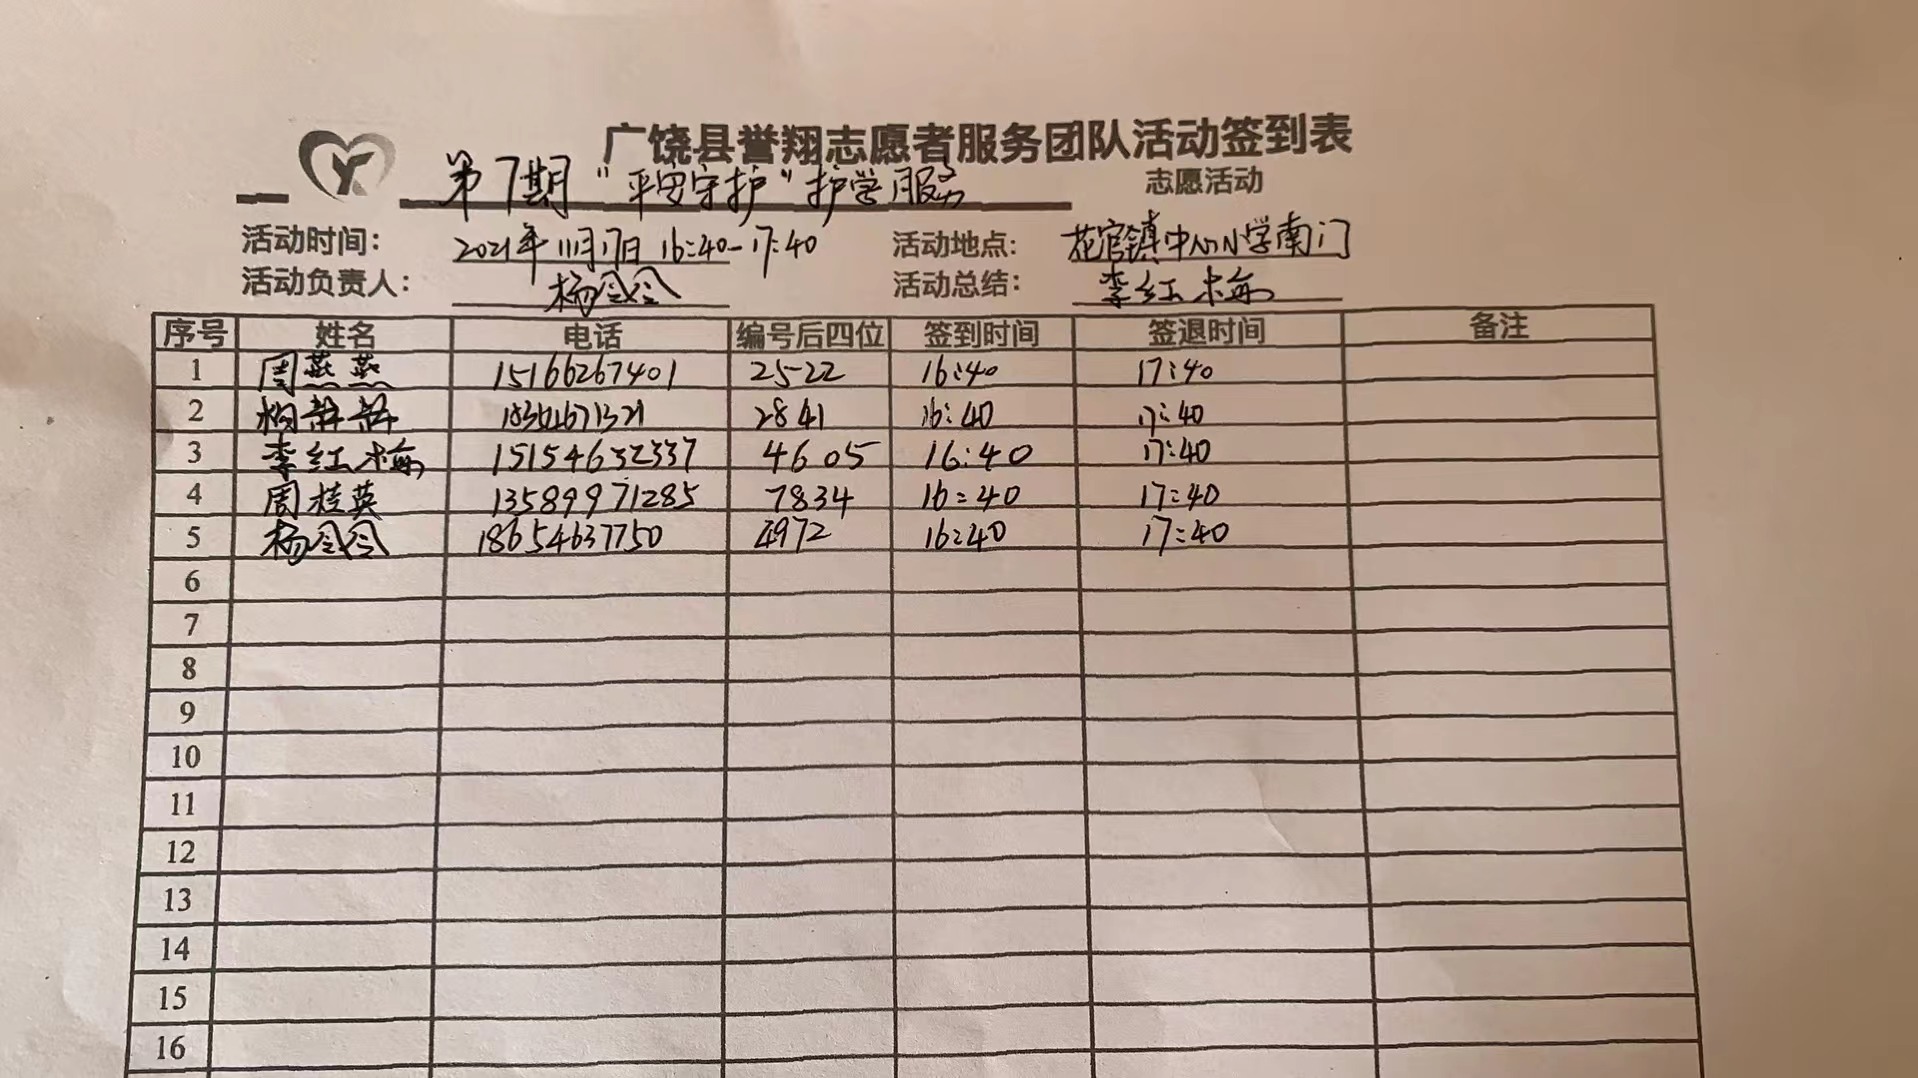 广饶县誉翔志愿者服务团队活动签到表
第7期“平安守护”护学服务 志愿活动
活动时间: 2021年11月17日 16:40-17:40 活动地点: 花官镇中心小学南门
活动负责人: 杨令令 活动总结: 李红梅
序号 姓名 电话 编号后四位 签到时间 签退时间 备注
1 周燕燕 15166267401 2522 16:40 17:40
2 2841 16:40 17:40
3 李红梅 15154652337 4605 16:40 17:40
4 周桂英 13589971285 7834 16:40 17:40
5 杨令令 18654637750 4972 16:40 17:40
6
7
8
9
10
11
12
13
14
15
16